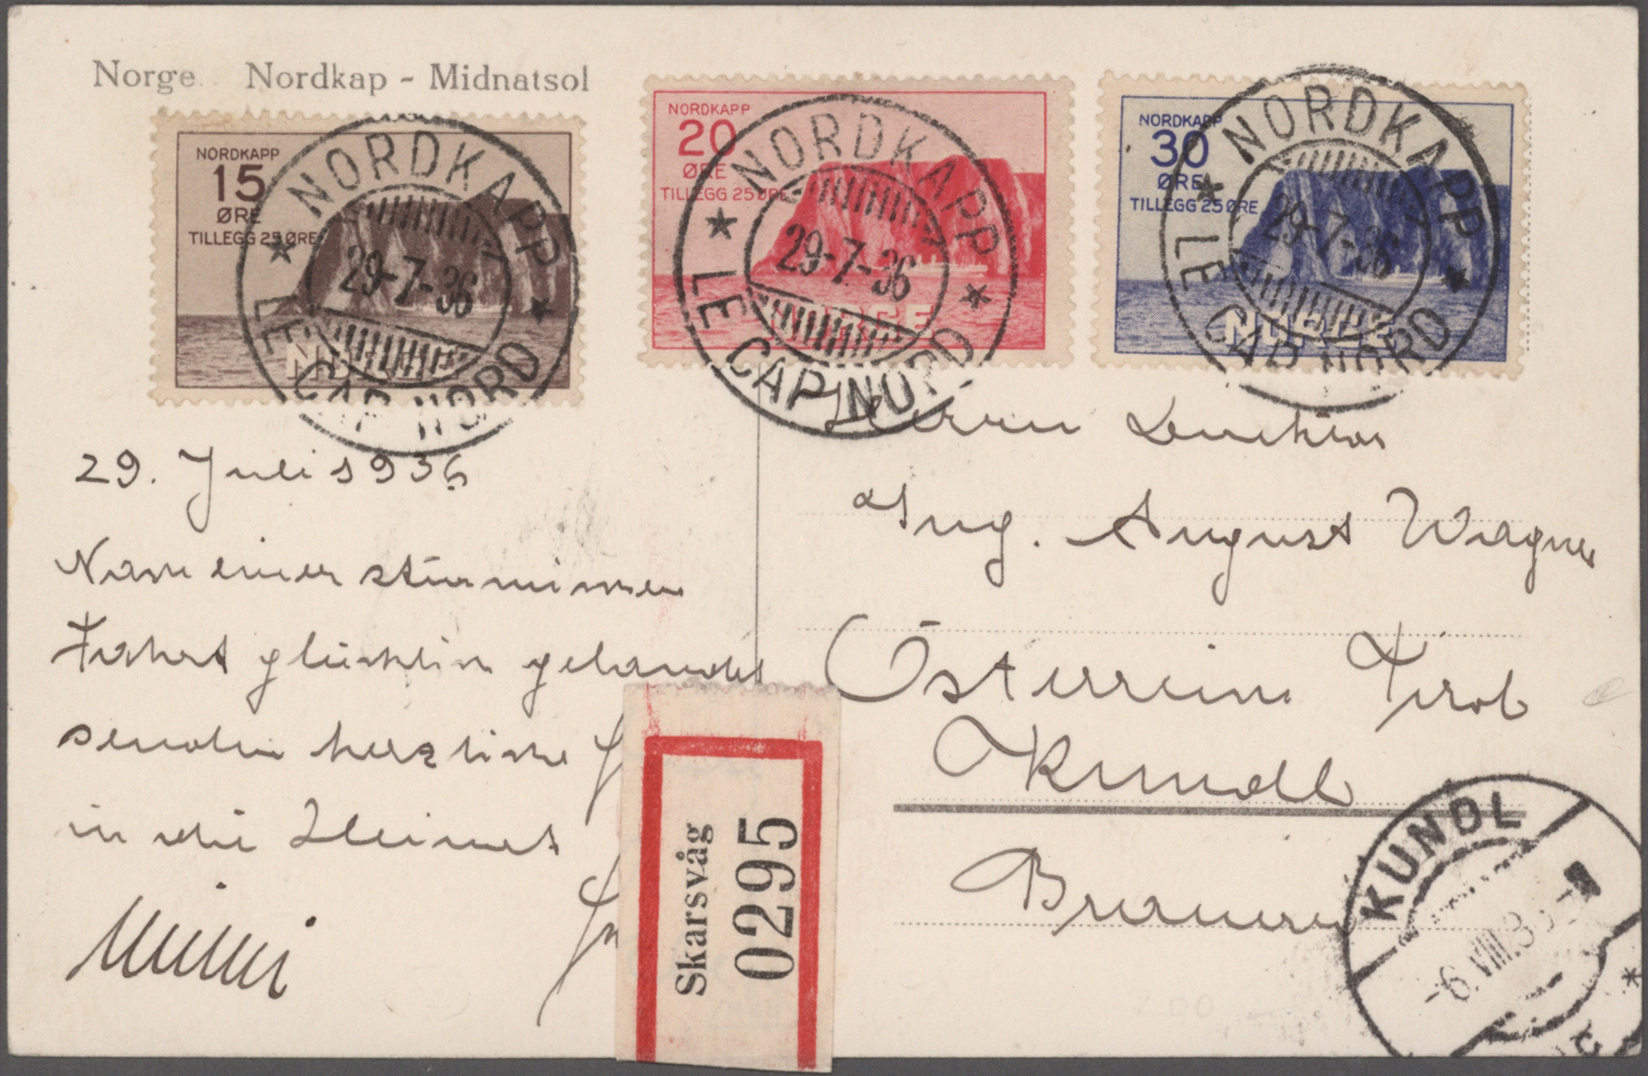 Norge Nordkap - Midnatsol
NORDKAPP
15
ØRE
TILLEGG 25 ØRE
NORDKAPP
LE CAP NORD
29-7-36
NORDKAPP
20
ØRE
TILLEGG 25 ØRE
NORGE
NORDKAPP
LE CAP NORD
29-7-36
NORDKAPP
30
ØRE
TILLEGG 25 ØRE
NORGE
NORDKAPP
LE CAP NORD
29-7-36
29. Juli 1936
Nach einer stürmischen
Fahrt glücklich gelandet
senden herzliche
in die Heimat
Herrn Direktor
Ing. August Wagner
Österreich Tirol
Kundl
Brauerei
Skarsvåg
0295
KUNDL
-6.VIII.36